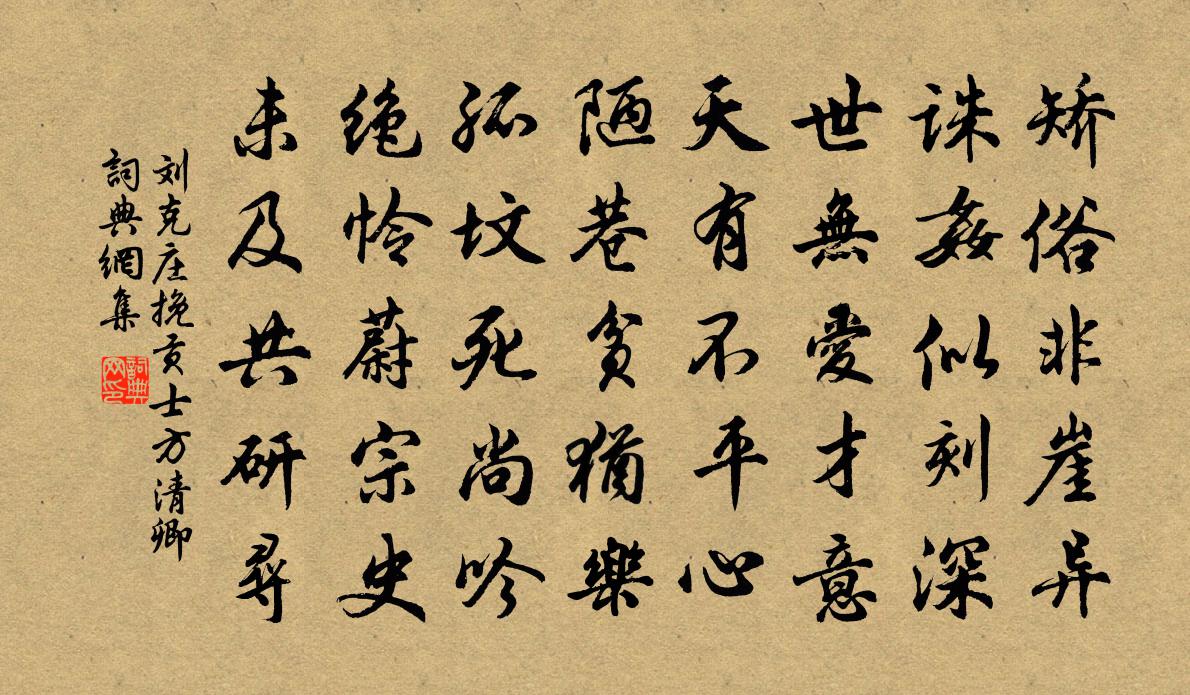 矫俗非崖异
誅姦似刻深
世無愛才意
天有不平心
陋巷贫猶樂
孤坟死尚吟
绝怜蔚宗史
未及共研尋
刘克庄挽贡士方清卿
詞典網集
詞典网印